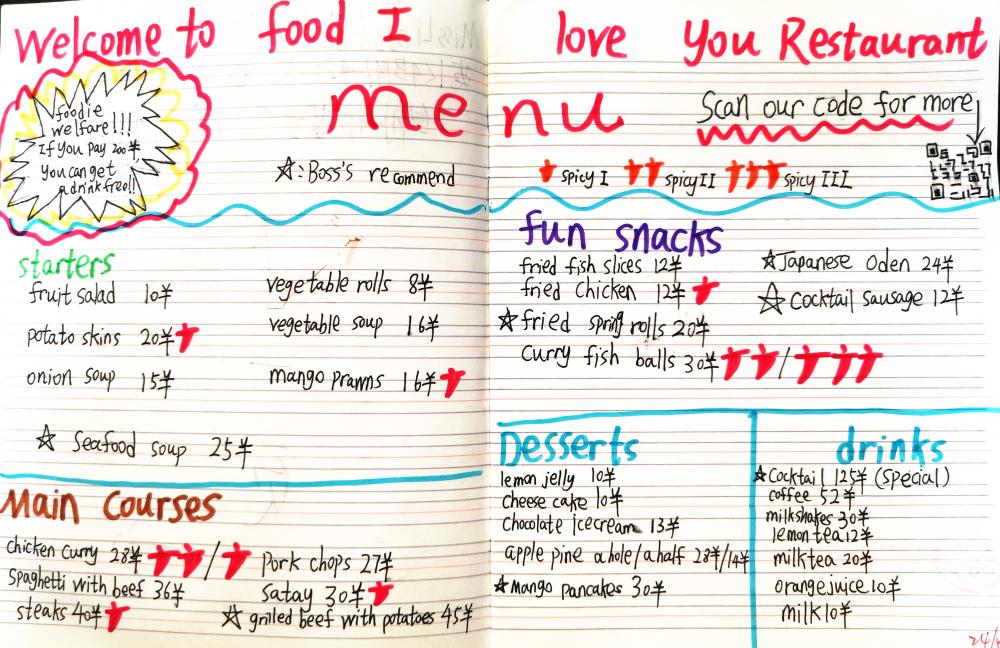 Welcome to food I love You Restaurant
menu
foodie
welfare!!!
If you pay 200¥,
you can get
a drink free!!
☆: Boss's recommend
Scan our code for more
spicy I spicy II spicy III
starters
fruit salad 10¥
potato skins 20¥
onion soup 15¥
vegetable rolls 8¥
vegetable soup 16¥
mango prawns 16¥
☆ Seafood soup 25¥
Main Courses
chicken curry 28¥ /
Spaghetti with beef 36¥
steaks 40¥
Pork chops 27¥
Satay 30¥
☆ grilled beef with potatoes 45¥
fun snacks
fried fish slices 12¥
fried chicken 12¥
☆ fried spring rolls 20¥
Curry fish balls 30¥ /
☆ Japanese Oden 24¥
☆ Cocktail sausage 12¥
Desserts
lemon jelly 10¥
cheese cake 10¥
chocolate icecream 13¥
apple pine a hole/a half 28¥/14¥
☆ Mango pancakes 30¥
drinks
☆ Cocktail 125¥ (special)
coffee 52¥
milkshakes 30¥
lemon tea 12¥
milk tea 20¥
orange juice 10¥
milk 10¥